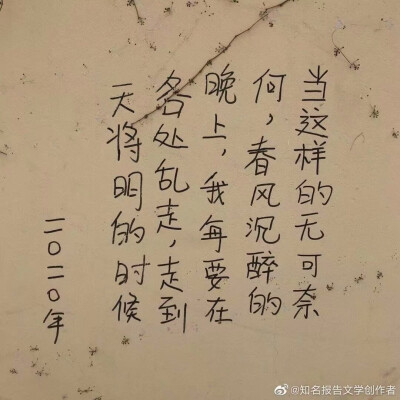 当这样的无可奈
何，春风沉醉的
晚上，我每要在
各处乱走，走到
天将明的时候
二〇二〇年
@知名报告文学创作者